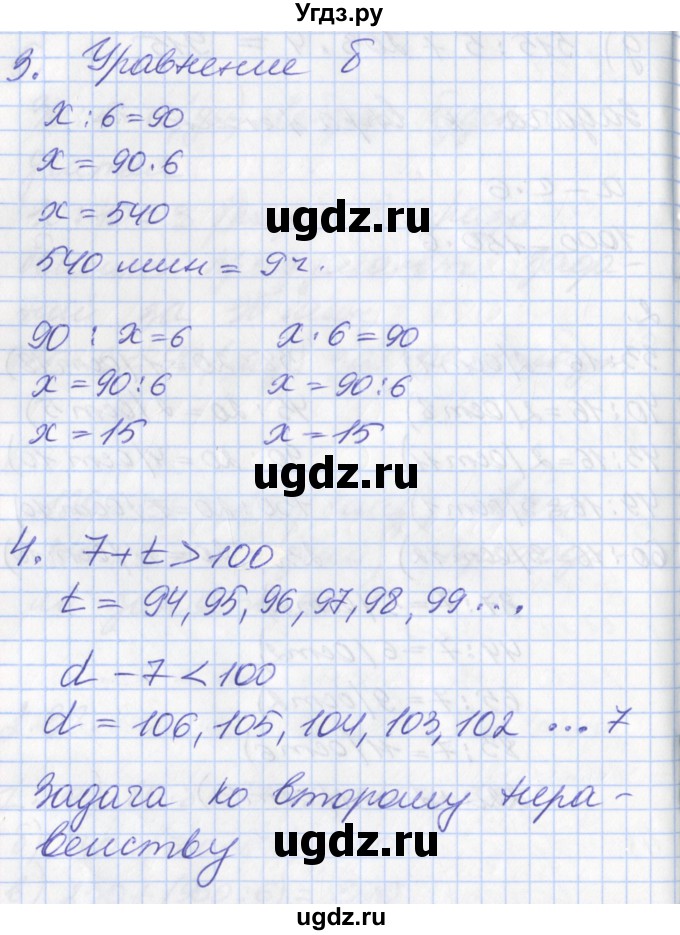 Угдз.ру
3. Уравнение б
x : 6 = 90
x = 90 · 6
x = 540
ugdz.ru
540 мин = 9 ч.
90 : x = 6 x · 6 = 90
x = 90 : 6 x = 90 : 6
x = 15 x = 15
ugdz.ru
4. 7 + t > 100
t = 94, 95, 96, 97, 98, 99 ...
d - 7 < 100
d = 106, 105, 104, 103, 102 ... 7
Задача ко второму нера-
венству
ugdz.ru
ugdz.ru